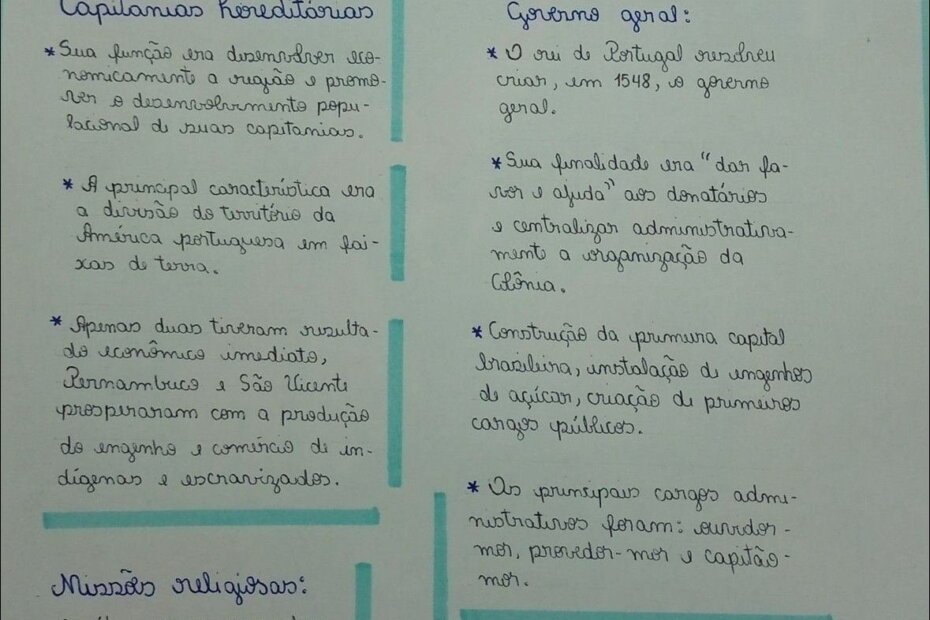 Capitanias hereditárias
* Sua função era desenvolver eco-
nomicamente a região e promo-
ver o desenvolvimento popu-
lacional de suas capitanias.
* A principal característica era
a divisão do território da
América portuguesa em fai-
xas de terra.
* Apenas duas tiveram resulta-
do econômico imediato,
Pernambuco e São Vicente
prosperaram com a produção
do engenho e comércio de in-
dígenas e escravizados.
Missões religiosas:
Governo geral:
* O rei de Portugal resolveu
criar, em 1548, o governo
geral.
* Sua finalidade era "dar fa-
vor e ajuda" aos donatários
e centralizar administrativa-
mente a organização da
Colônia.
* Construção da primeira capital
brasileira, instalação de engenhos
de açúcar, criação de primeiros
cargos públicos.
* Os principais cargos admi-
nistrativos foram: ouvidor-
mor, provedor-mor e capitão-
mor.